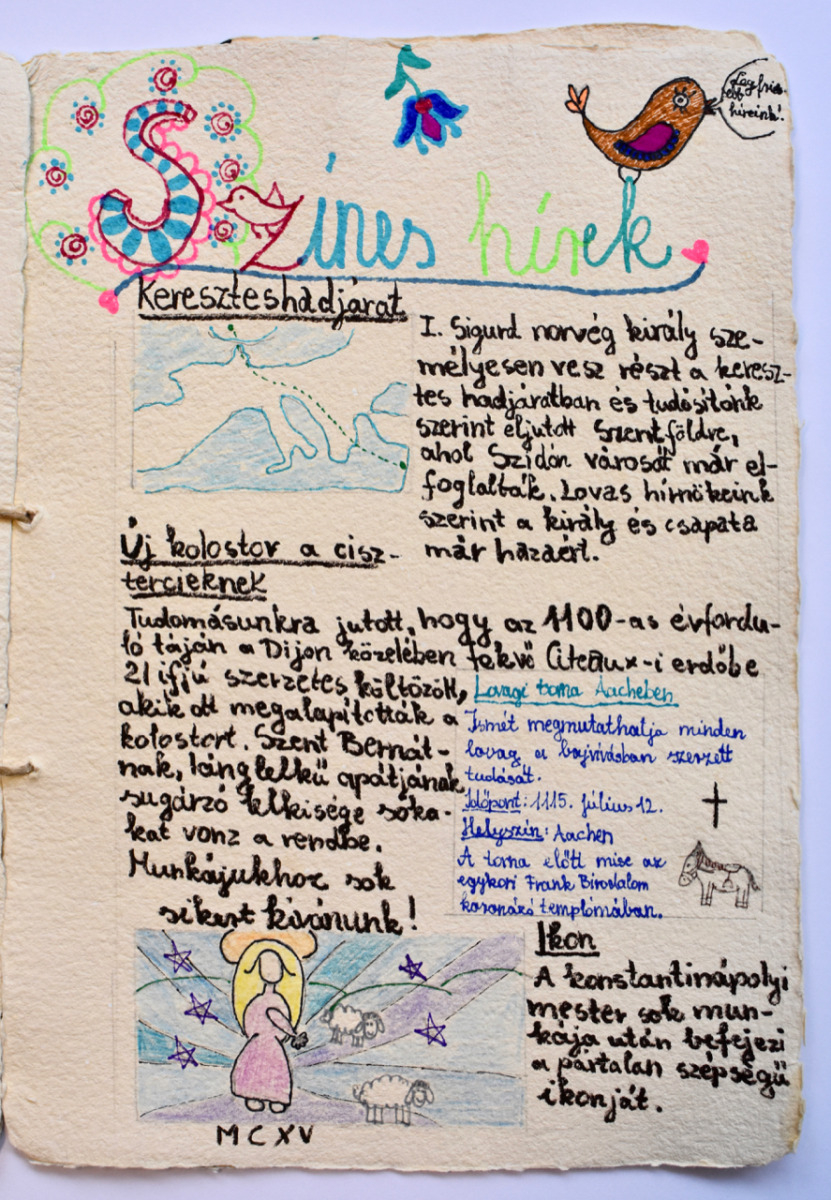 Színes hírek
Legfris-
sebb
híreink!
Kereszteshadjárat
I. Sigurd norvég király sze-
mélyesen vesz részt a keresz-
tes hadjáratban és tudósítónk
szerint eljutott Szentföldre,
ahol Szidón városát már el-
foglalták. Lovas hírnökeink
szerint a király és csapata
már hazaért.
Új kolostor a cisz-
tercieknek
Tudomásunkra jutott, hogy az 1100-as évfordu-
ló táján a Dijon közelében fekvő Citeaux-i erdőbe
21 ifjú szerzetes költözött,
akik ott megalapították a
kolostort. Szent Bernát-
nak, lánglelkű apátjának
sugárzó lelkisége soka-
kat vonz a rendbe.
Munkájukhoz sok
sikert kívánunk!
Lovagi torna Aachenben
Ismét megmutathatja minden
lovag a bajvívásban szerzett
tudását.
Időpont: 1115. július 12.
Helyszín: Aachen
A torna előtt mise az
egykori Frank Birodalom
koronázó templomában.
Ikon
A konstantinápolyi
mester sok mun-
kája után befejezi
a pártalan szépségű
ikonját.
MCXV